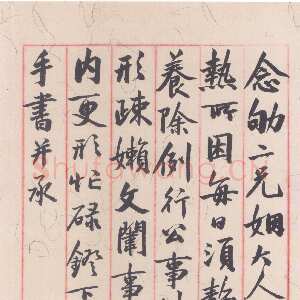 念劬二兄姻大人
熱所困每日須
養除例行公事
形疎嬾文闈事
内更形忙碌鐙下
手書并承